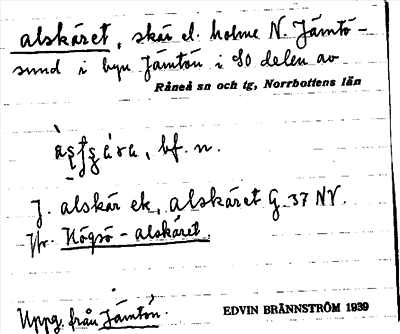 alskäret, skär el. holme N. Jämtö-
sund i byn Jämtön i SO delen av
Råneå sn och tg, Norrbottens län
bf. n.
J. alskär ek, alskäret G. 37 NV.
Jfr. Högsö-alskäret.
Uppg. från Jämtön.
EDVIN BRÄNNSTRÖM 1939